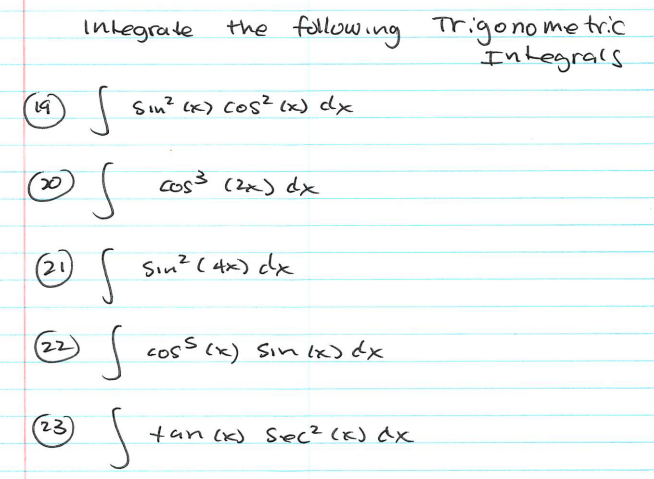 Integrate the following Trigonometric
Integrals
(19) ∫ sin² (x) cos² (x) dx
(20) ∫ cos³ (2x) dx
(21) ∫ sin² (4x) dx
(22) ∫ cos⁵ (x) sin (x) dx
(23) ∫ tan (x) sec² (x) dx